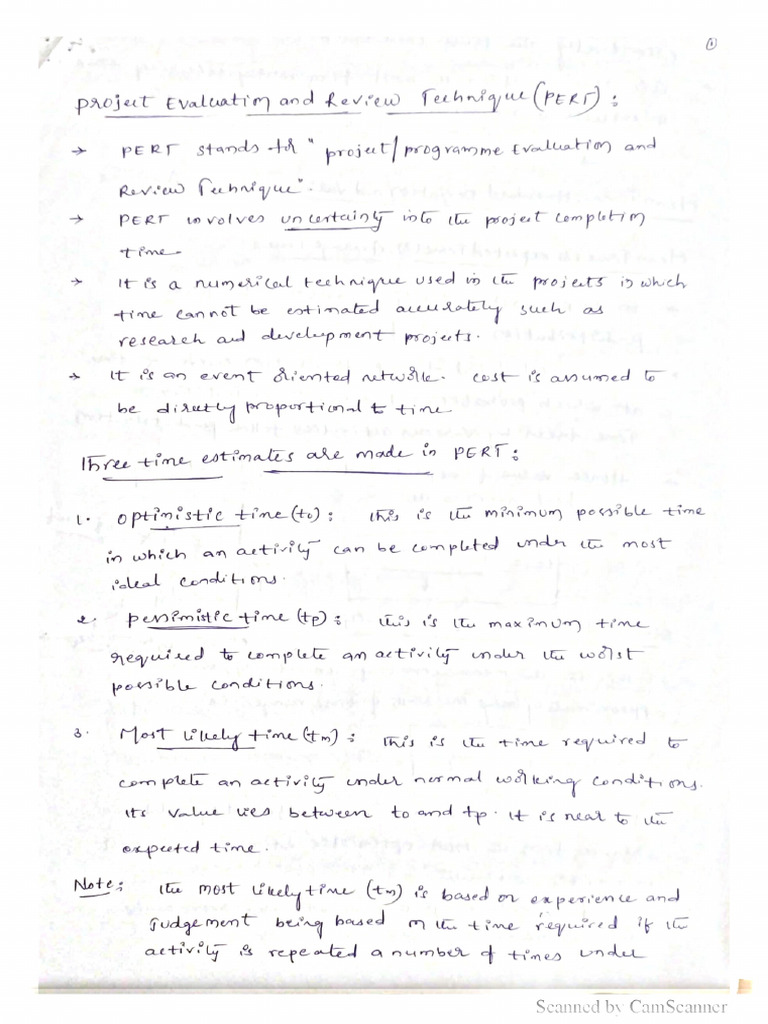 1
Project Evaluation and Review Technique (PERT) :
→ PERT stands for "project/programme Evaluation and
Review Technique".
→ PERT involves uncertainty into the project completion
time.
→ It is a numerical technique used in the projects in which
time cannot be estimated accurately such as
research and development projects.
→ It is an event oriented network. cost is assumed to
be directly proportional to time
Three time estimates are made in PERT :
1. optimistic time (to) : This is the minimum possible time
in which an activity can be completed under the most
ideal conditions.
2. pessimistic time (tp) : This is the maximum time
required to complete an activity under the worst
possible conditions.
3. Most likely time (tm) : This is the time required to
complete an activity under normal working conditions.
Its value lies between to and tp. It is near to the
expected time.
Note : The most likely time (tm) is based on experience and
Judgement being based on the time required if the
activity is repeated a number of times under
Scanned by CamScanner